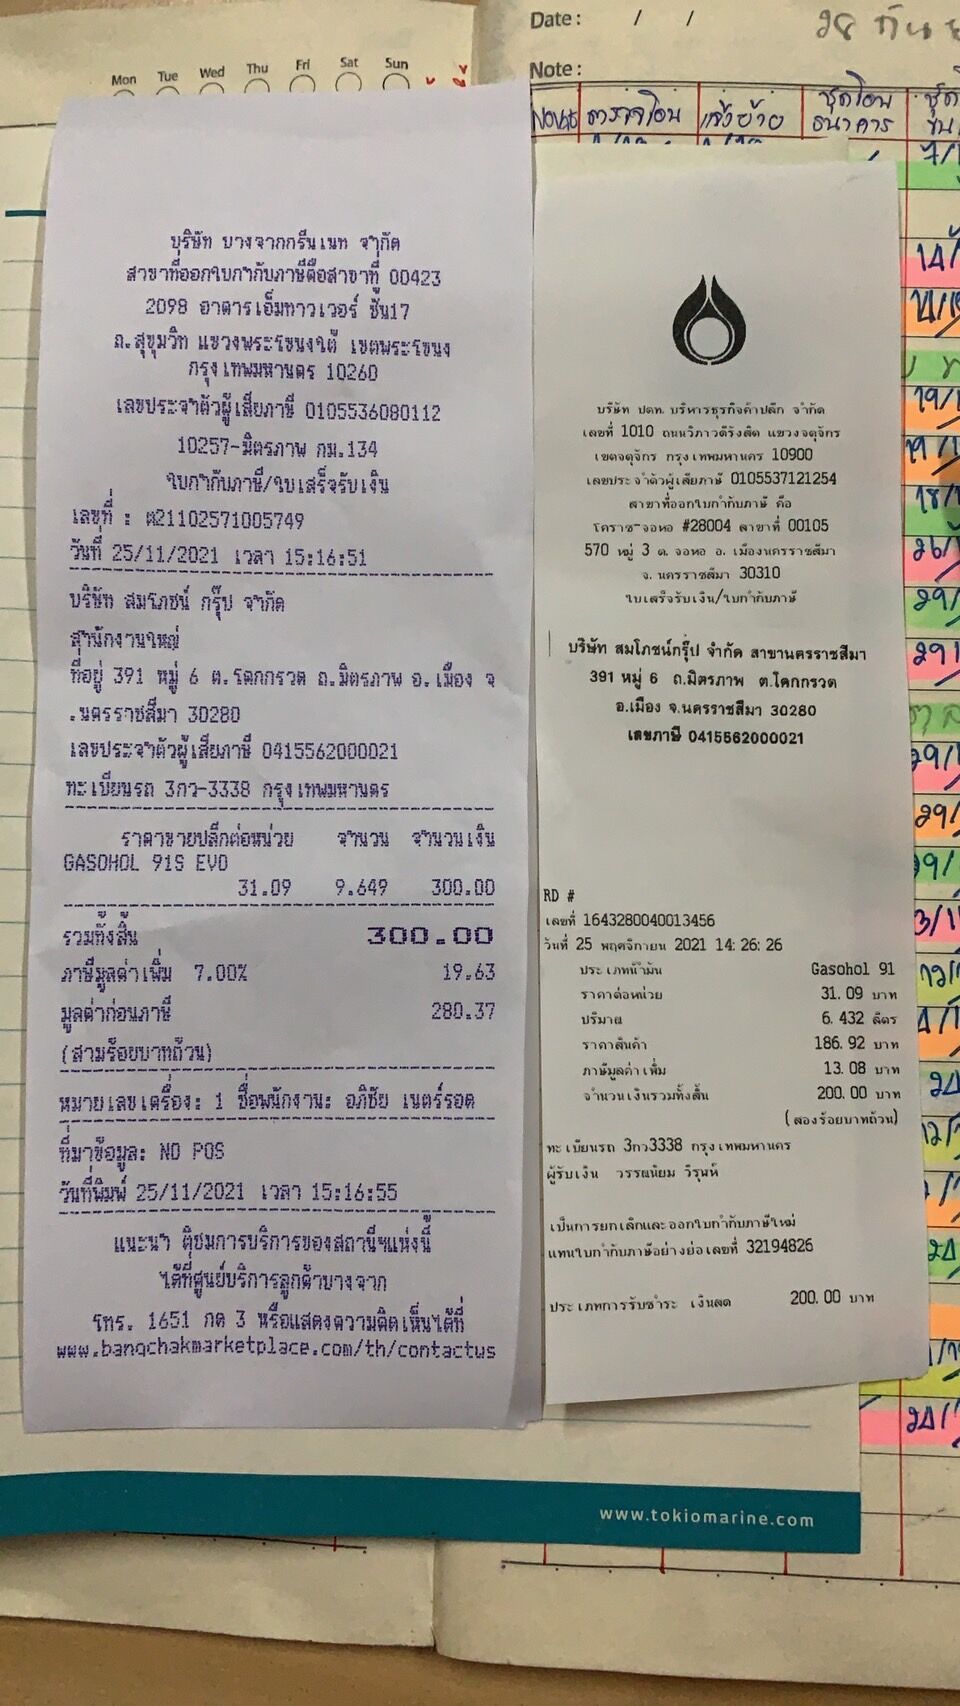 Date : / /
Note :
Mon Tue Wed Thu Fri Sat Sun
บริษัท บางจากกรีนเนท จำกัด
สาขาที่ออกใบกำกับภาษีคือสาขาที่ 00423
2098 อาคารเอ็มทาวเวอร์ ชั้น17
ถ.สุขุมวิท แขวงพระโขนงใต้ เขตพระโขนง
กรุงเทพมหานคร 10260
เลขประจำตัวผู้เสียภาษี 0105536080112
10257-มิตรภาพ กม.134
ใบกำกับภาษี/ใบเสร็จรับเงิน
เลขที่ : ต21102571005749
วันที่ 25/11/2021 เวลา 15:16:51
บริษัท สมโภชน์ กรุ๊ป จำกัด
สำนักงานใหญ่
ที่อยู่ 391 หมู่ 6 ต.โคกกรวด ถ.มิตรภาพ อ.เมือง จ
.นครราชสีมา 30280
เลขประจำตัวผู้เสียภาษี 0415562000021
ทะเบียนรถ 3กว-3338 กรุงเทพมหานคร
ราคาขายปลีกต่อหน่วย จำนวน จำนวนเงิน
GASOHOL 91S EVO
31.09 9.649 300.00
รวมทั้งสิ้น 300.00
ภาษีมูลค่าเพิ่ม 7.00% 19.63
มูลค่าก่อนภาษี 280.37
(สามร้อยบาทถ้วน)
หมายเลขเครื่อง: 1 ชื่อพนักงาน: อภิชัย เนตร์รอด
ที่มาข้อมูล: NO POS
วันที่พิมพ์ 25/11/2021 เวลา 15:16:55
แนะนำ ติชมการบริการของสถานีฯแห่งนี้
ได้ที่ศูนย์บริการลูกค้าบางจาก
โทร. 1651 กด 3 หรือแสดงความคิดเห็นได้ที่
www.bangchakmarketplace.com/th/contactus
บริษัท ปตท. บริหารธุรกิจค้าปลีก จำกัด
เลขที่ 1010 ถนนวิภาวดีรังสิต แขวงจตุจักร
เขตจตุจักร กรุงเทพมหานคร 10900
เลขประจำตัวผู้เสียภาษี 0105537121254
สาขาที่ออกใบกำกับภาษี คือ
โคราช-จอหอ #28004 สาขาที่ 00105
570 หมู่ 3 ต. จอหอ อ. เมืองนครราชสีมา
จ. นครราชสีมา 30310
ใบเสร็จรับเงิน/ใบกำกับภาษี
บริษัท สมโภชน์กรุ๊ป จำกัด สาขานครราชสีมา
391 หมู่ 6 ถ.มิตรภาพ ต.โคกกรวด
อ.เมือง จ.นครราชสีมา 30280
เลขภาษี 0415562000021
RD #
เลขที่ 1643280040013456
วันที่ 25 พฤศจิกายน 2021 14:26:26
ประเภทน้ำมัน Gasohol 91
ราคาต่อหน่วย 31.09 บาท
ปริมาณ 6.432 ลิตร
ราคาสินค้า 186.92 บาท
ภาษีมูลค่าเพิ่ม 13.08 บาท
จำนวนเงินรวมทั้งสิ้น 200.00 บาท
(สองร้อยบาทถ้วน)
ทะเบียนรถ 3กว3338 กรุงเทพมหานคร
ผู้รับเงิน วรรณนิยม วีรุนห์
เป็นการยกเลิกและออกใบกำกับภาษีใหม่
แทนใบกำกับภาษีอย่างย่อเลขที่ 32194826
ประเภทการรับชำระ เงินสด 200.00 บาท
www.tokiomarine.com